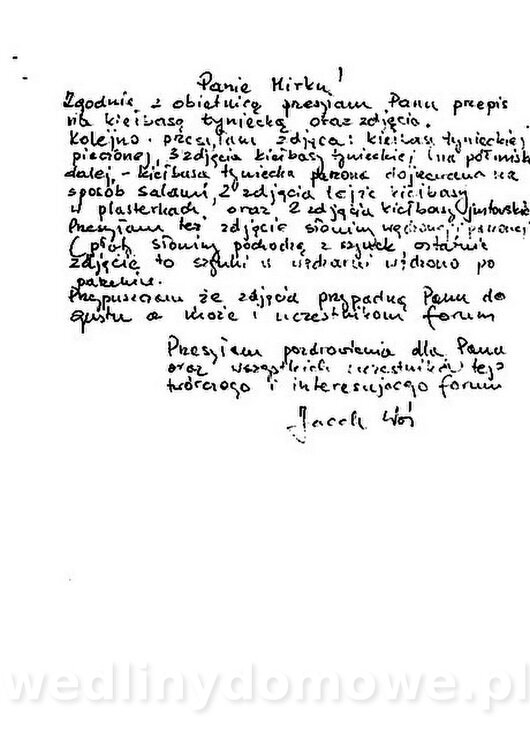 Panie Mirku!
Zgodnie z obietnicą przesyłam Panu przepis
na kiełbasę tyniecką oraz zdjęcia.
Kolejno przesyłam zdjęcia: kiełbasy tynieckiej
pieczonej, 3 zdjęcia kiełbasy tynieckiej (na półmisku
dalej - kiełbasa tyniecka parzona dojrzewana na
sposób salami, 2 zdjęcia tejże kiełbasy
w plasterkach oraz 2 zdjęcia kiełbasy justowskiej
Przesyłam też zdjęcie słoniny wędzonej i parzonej
(płat słoniny pochodzą z szynek ostatnie
zdjęcie to szynki w wędzarni wędzono po
parzeniu.
Przypuszczam że zdjęcia przypadną Panu do
gustu a może i uczestnikom forum
Przesyłam pozdrowienia dla Pana
oraz wszystkich uczestników tego
twórczego i interesującego forum
Jacek Woś
wedlinydomowe.pl